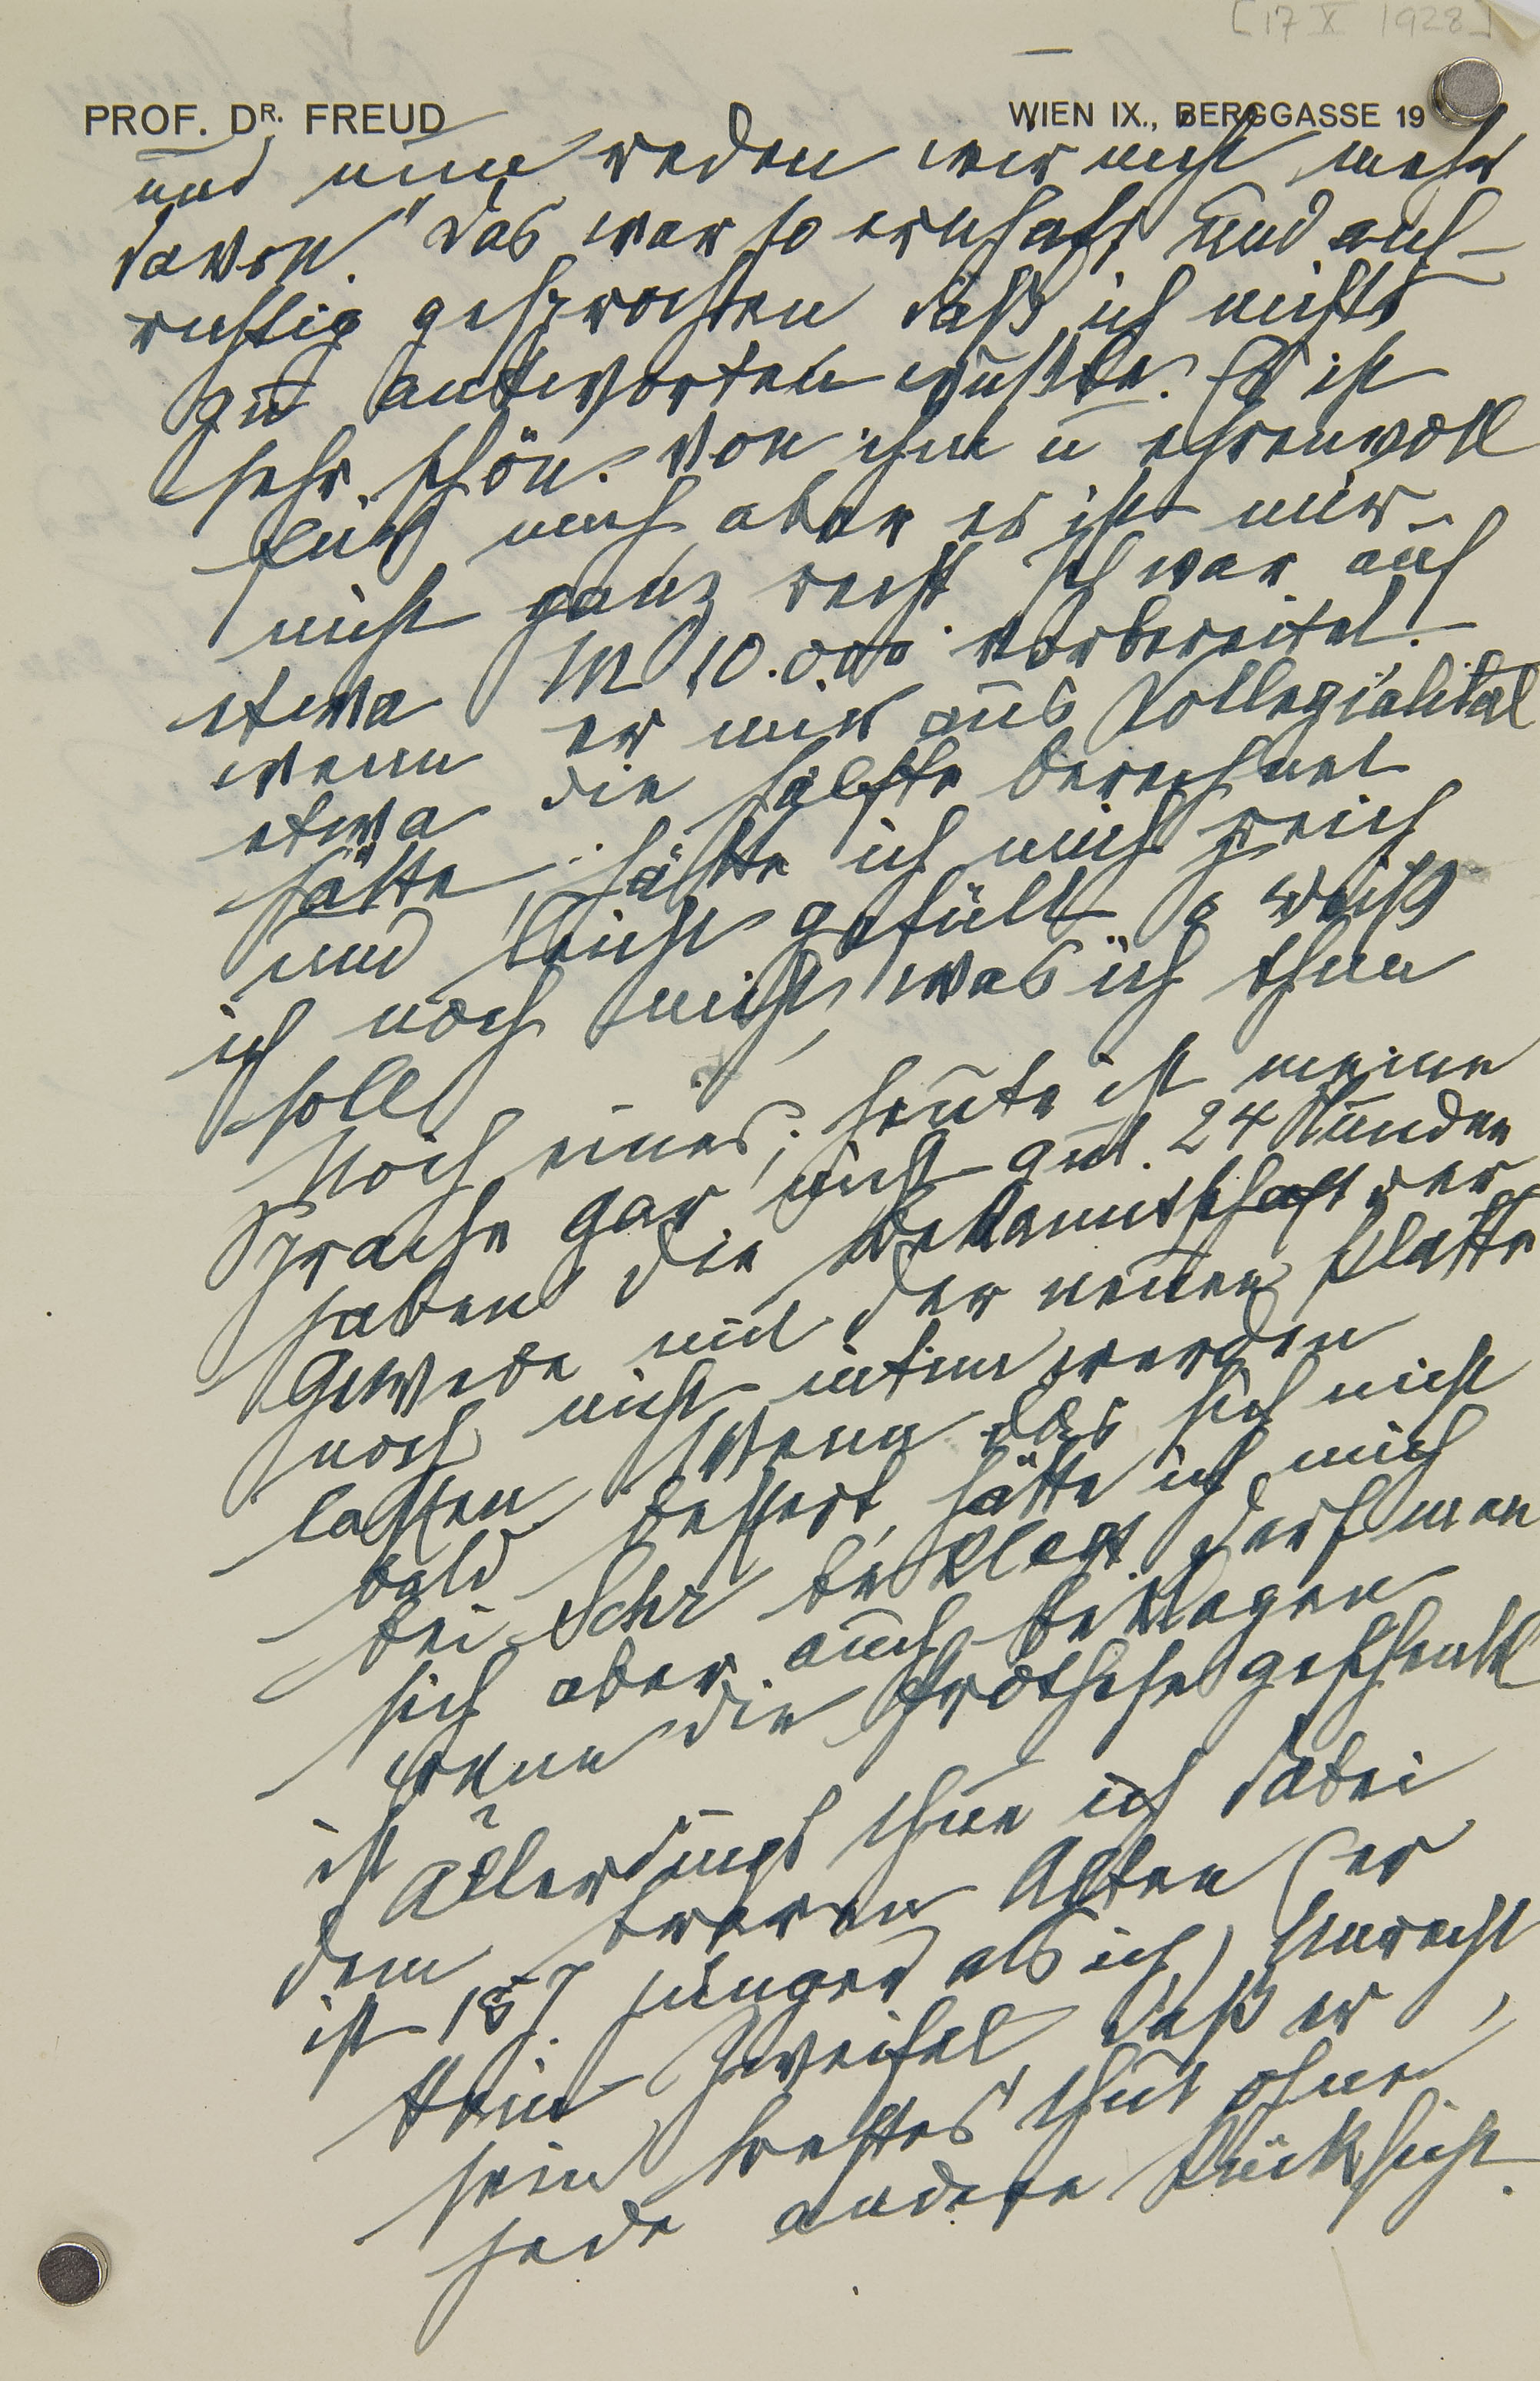 [17 X 1928]
PROF. DR. FREUD
WIEN IX., BERGGASSE 19
und nun reden wir nicht mehr
davon." Das war so ernsthaft und auf-
richtig gesprochen daß ich nichts
zu antworten wußte. Es ist
sehr schön von ihm u ehrenvoll
für mich aber es ist mir
nicht ganz recht Ich war auf
etwa M 10.000 vorbereitet!
wenn er mir aus Kollegialität
etwa die Hälfte berechnet
hätte, hätte ich mich reich
und leicht gefühlt. So weiß
ich noch nicht, was ich thun
soll
Noch eines; heute ist meine
Sprache gar nicht gut. 24 Stunden
haben die Bekanntschaft der
Gewebe mit der neuen Platte
noch nicht intim werden
lassen Wenn das sich nicht
bald bessert, hätte ich mich
bei Schr beklagt. Darf man
sich aber auch beklagen
wenn die Prothese geschenkt
ist?
Allerdings thue ich dabei
dem braven Alten (er
ist 15 J. jünger als ich) Unrecht
Kein Zweifel, daß er
sein Bestes thut ohne
jede andere Rücksicht.